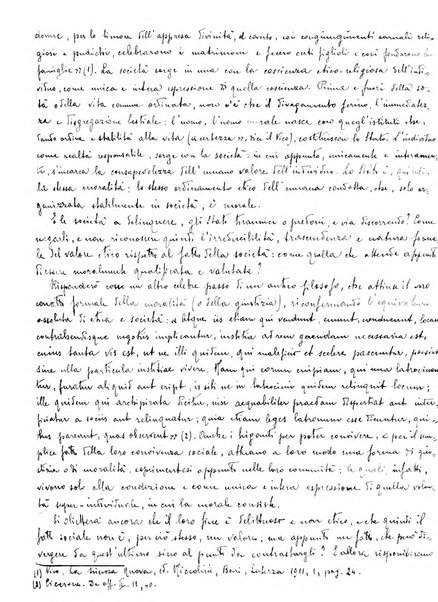 donne, per lo timore dell'appresa divinità, al coverto, coi congiungimenti carnali reli-
giosi e pudichi, celebrarono i matrimoni e fecero certi figlioli e così fondarono le
famiglie" (1). La società sorge in una con la coscienza etico-religiosa dell'indi-
viduo, come unica e intera espressione di quella coscienza. Prima e fuori della so-
cietà o della vita comune ordinata, non v'è che il divagamento ferino, l'immediatez-
za e disgregazione bestiale: l'uomo, l'uomo morale nasce con quegli istituti che,
dando ordine e stabilità alla vita (la certezza, dice il Vico), costituiscono lo Stato. L'individuo
come realtà responsabile, sorge con la società: in cui appunto, unicamente e interamen-
te, s'incarna la consapevolezza dell'umano valore dell'individuo. Lo Stato è, quindi,
la stessa moralità: lo stesso ordinamento etico dell'umana condotta, che, solo or-
ganizzata stabilmente in società, è morale.
E le società a delinquere, gli Stati tirannici o predoni, e via discorrendo? Come
negarli, e non riconoscere quindi l'irreducibilità, trascendenza e natura forma-
le del valore etico rispetto al fatto della società: come quella che attende appunto
di essere moralmente qualificata e valutata?
Risponderò con un altro celebre passo di un antico filosofo, che attina il vero
carattere formale della moralità (o della giustizia), riconfermando l'equivalenza
assoluta di etica e società: "Atque iis etiam qui vendunt, emunt, conducunt, locant
contrahendisque negotiis implicantur, iustitia ad rem gerendam necessaria est,
cuius tanta vis est, ut ne illi quidem, qui maleficio et scelere pascuntur, possint
sine ulla particula iustitiae vivere. Nam qui eorum cuipiam, qui una latrocinan-
tur, furatur aliquid aut eripit, is sibi ne in latrocinio quidem relinquit locum;
ille quidem qui archipirata dicitur, nisi aequabiliter praedam dispertiat aut inter-
ficiatur a sociis aut relinquatur; quia etiam leges latronum esse dicuntur, qui-
bus pareant, quas observent" (2). Anche i briganti per poter convivere, e per il sem-
plice fatto della loro convivenza sociale, attuano a loro modo una forma di giu-
stizia o di moralità, esprimentesi appunto nelle loro comunità: le quali, infatti,
vivono solo alla condizione e come unica e intera espressione di quella volon-
tà super-individuale, in cui la morale consiste.
Si obietterà ancora che il loro fine è delittuoso e non etico, e che quindi il
fatto sociale non è, per ciò stesso, un valore, ma appunto un fatto, che può di-
vergere da quest'ultimo sino al punto da contrastargli? E allora risponderemo
(1) Vico. La Scienza Nuova, ed. Nicolini, Bari, Laterza 1911, I, pag. 24.
(2) Cicerone. De off. II, 11, 40.